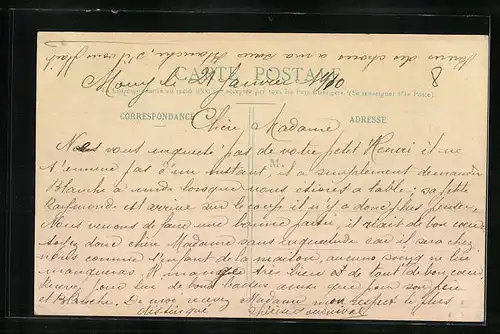 bien des choses a ma sœur Blanche, s'il vous plait
CARTE POSTALE
Mouy le 21 Janvier 1910
8
(Se renseigner à la Poste)
CORRESPONDANCE
ADRESSE
Chère Madame
M.
vous inquieté pas de votre petit Henri il ne
s'ennuie pas d'un instant, il a simplement demander
Blanche a midi lorsque nous étions a table; sa petite
Raymonde est arrivé sur le coup il n'y a donc plus penser
Nous venons de faire une bonne partie, il était de bon cœur
donc chère Madame sans inquietude car il sera chez
nous comme l'enfant de la maison, aucuns soins ne lui
manqueras. Il mange très bien et de tout de bon cœur
Recevez de lui de bons baisers ainsi que pour son père
et Blanche. De moi recevez Madame mon respect le plus
distingué